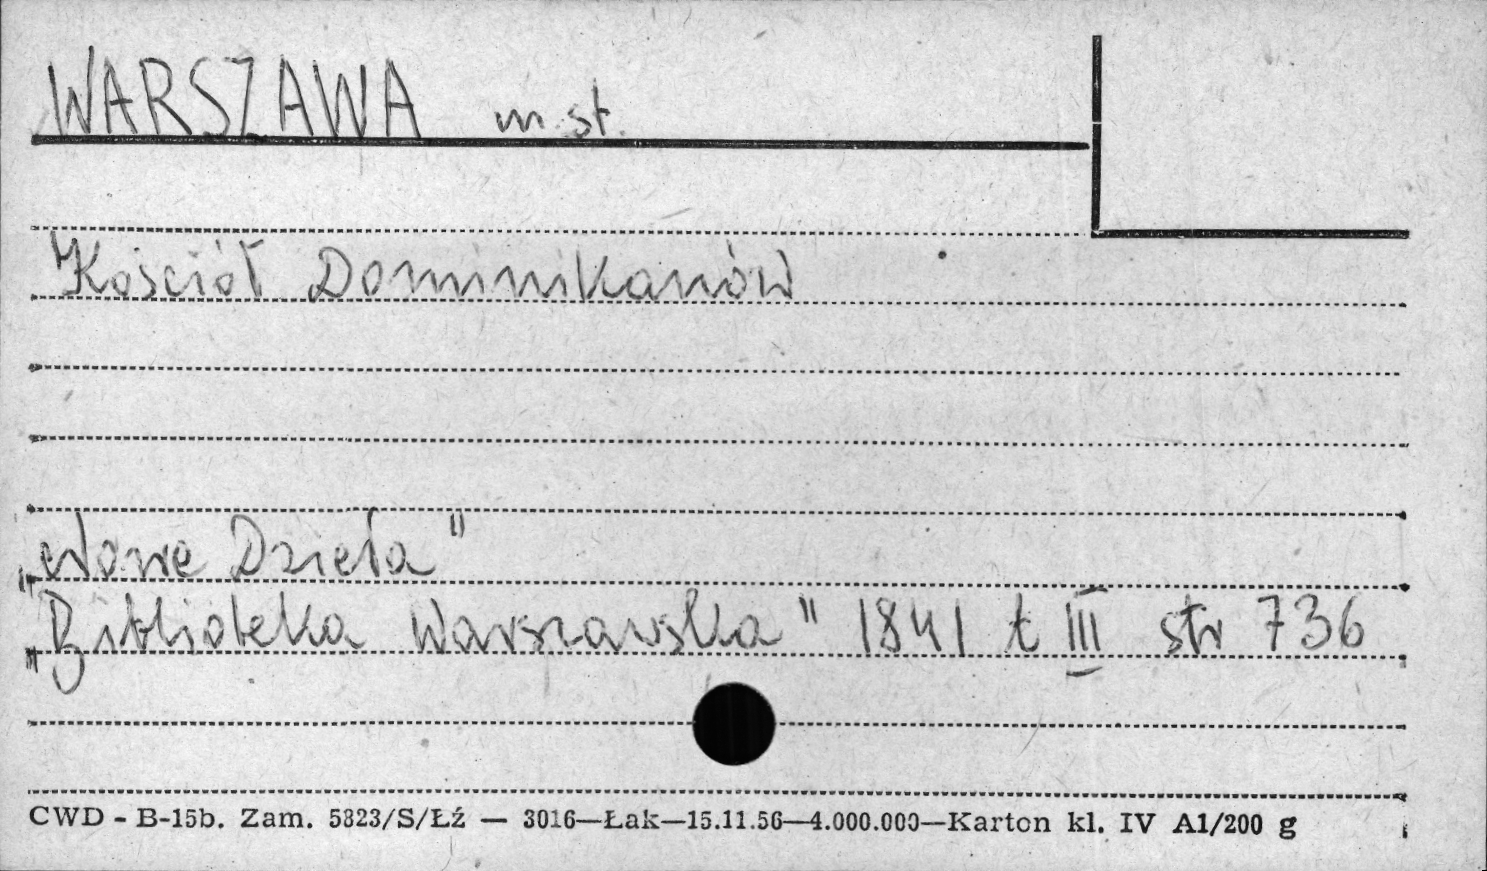 WARSZAWA m. st.
Kościół Dominikanów
„Nowe Dzieła"
„Biblioteka Warszawska" 1841 t III str 736
CWD - B-15b. Zam. 5823/S/Łź — 3016—Łak—15.11.56—4.000.000—Karton kl. IV A1/200 g